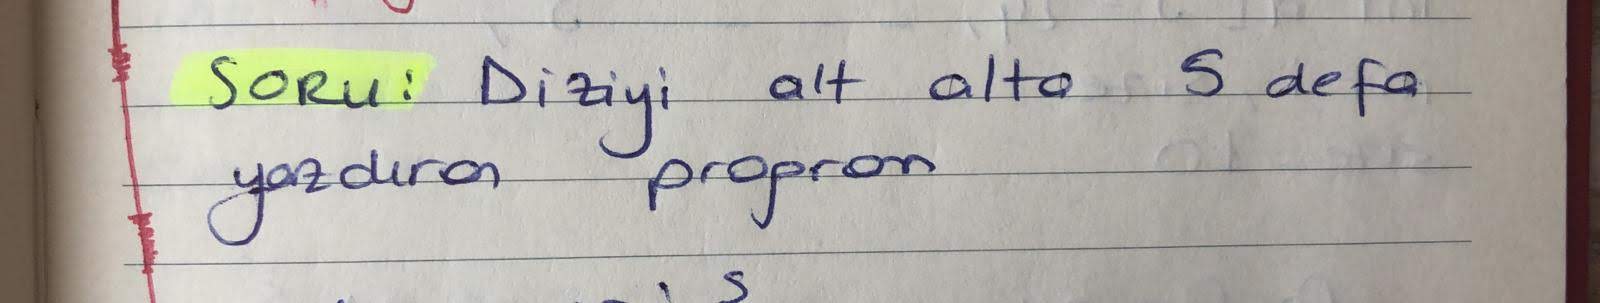 SORU: Diziyi alt alta 5 defa
yazdıran program